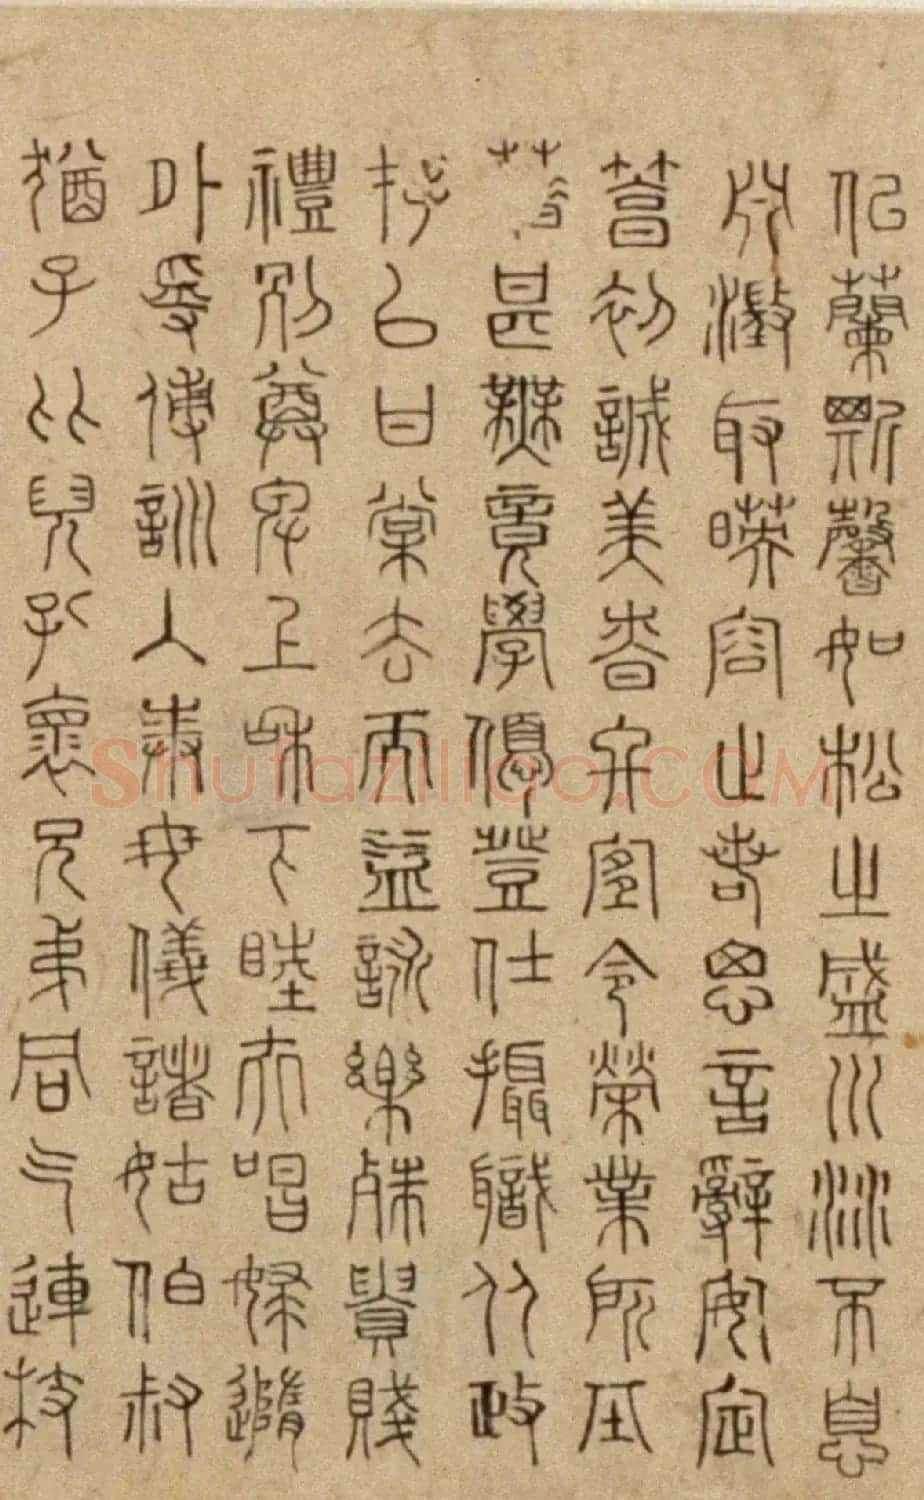 似蘭斯馨如松之盛川流不息
淵澂取暎容止若思言辭安定
篤初誠美慎終宜令榮業所基
藉甚無竟學優登仕攝職從政
存以甘棠去而益詠樂殊貴賤
禮別尊卑上和下睦夫唱婦隨
外受傅訓入奉母儀諸姑伯叔
猶子比兒孔懷兄弟同氣連枝
Shufaziliao.COM